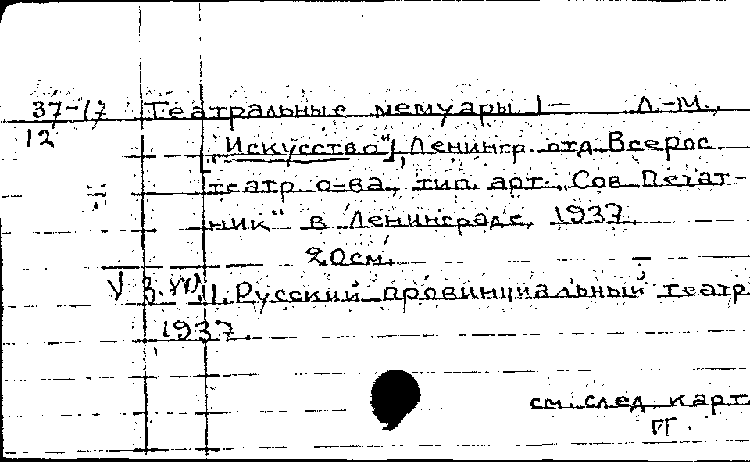 37-17 Театральные мемуары 1- Л.-М.,
12 [„Искусство"], Ленингр. отд. Всерос
театр о-ва, тип. арт. „Сов Печат-
ник" в Ленинграде, 1937.
20см.
1. Русский провинциальный театр
1937.
см. след. карт